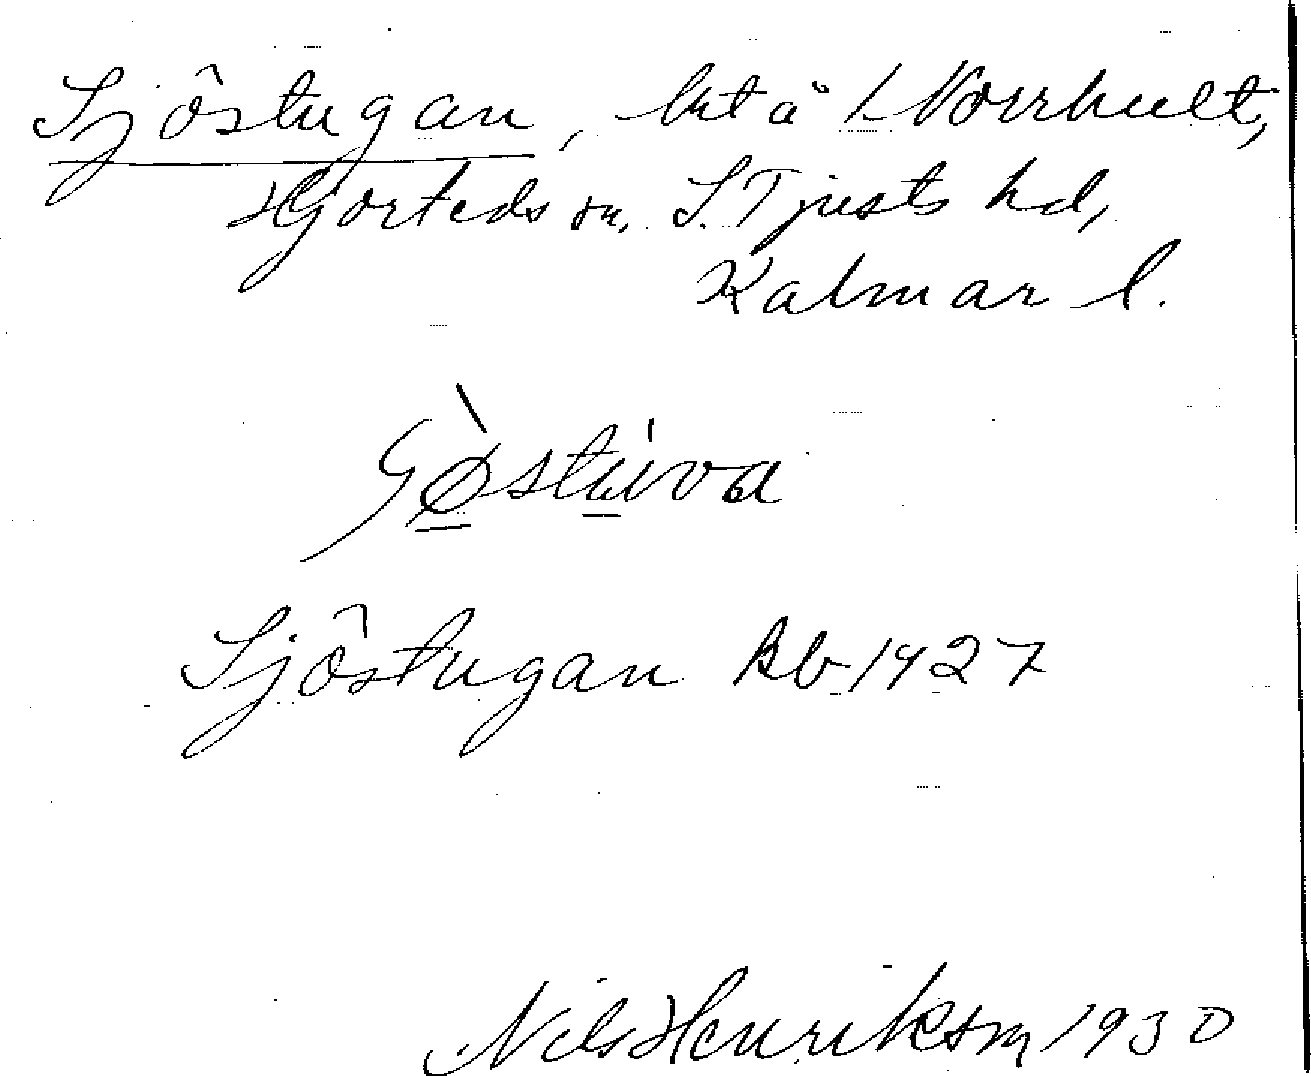 Sjöstugan, lht å 1 Norrhult,
Hjorteds sn, S. Tjusts hd,
Kalmar l.
Sjöstugan Rb 1927
Nils Henrikson 1930